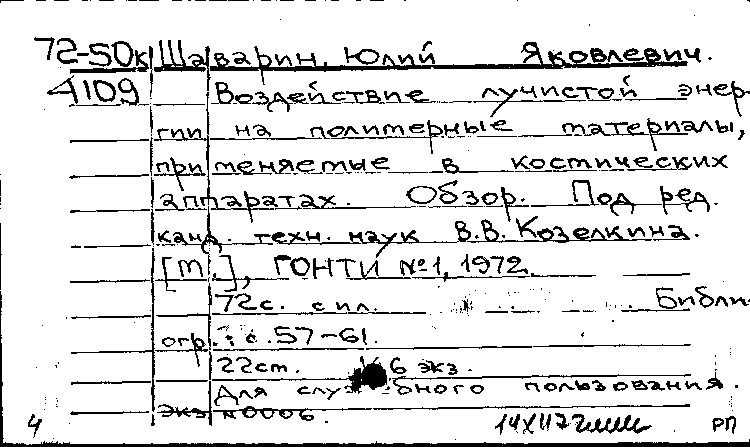 72-50к Шаварин, Юлий Яковлевич.
4109 Воздействие лучистой энер-
гии на полимерные материалы,
применяемые в костических
аппаратах. Обзор. Под ред.
канд. техн. наук В.В. Козелкина.
[М.], ГОНТИ №1, 1972.
72с. с ил. Библи-
огр.: с.57-61.
22см. 6 экз.
Для служебного пользования.
экз №0006.
4 РП